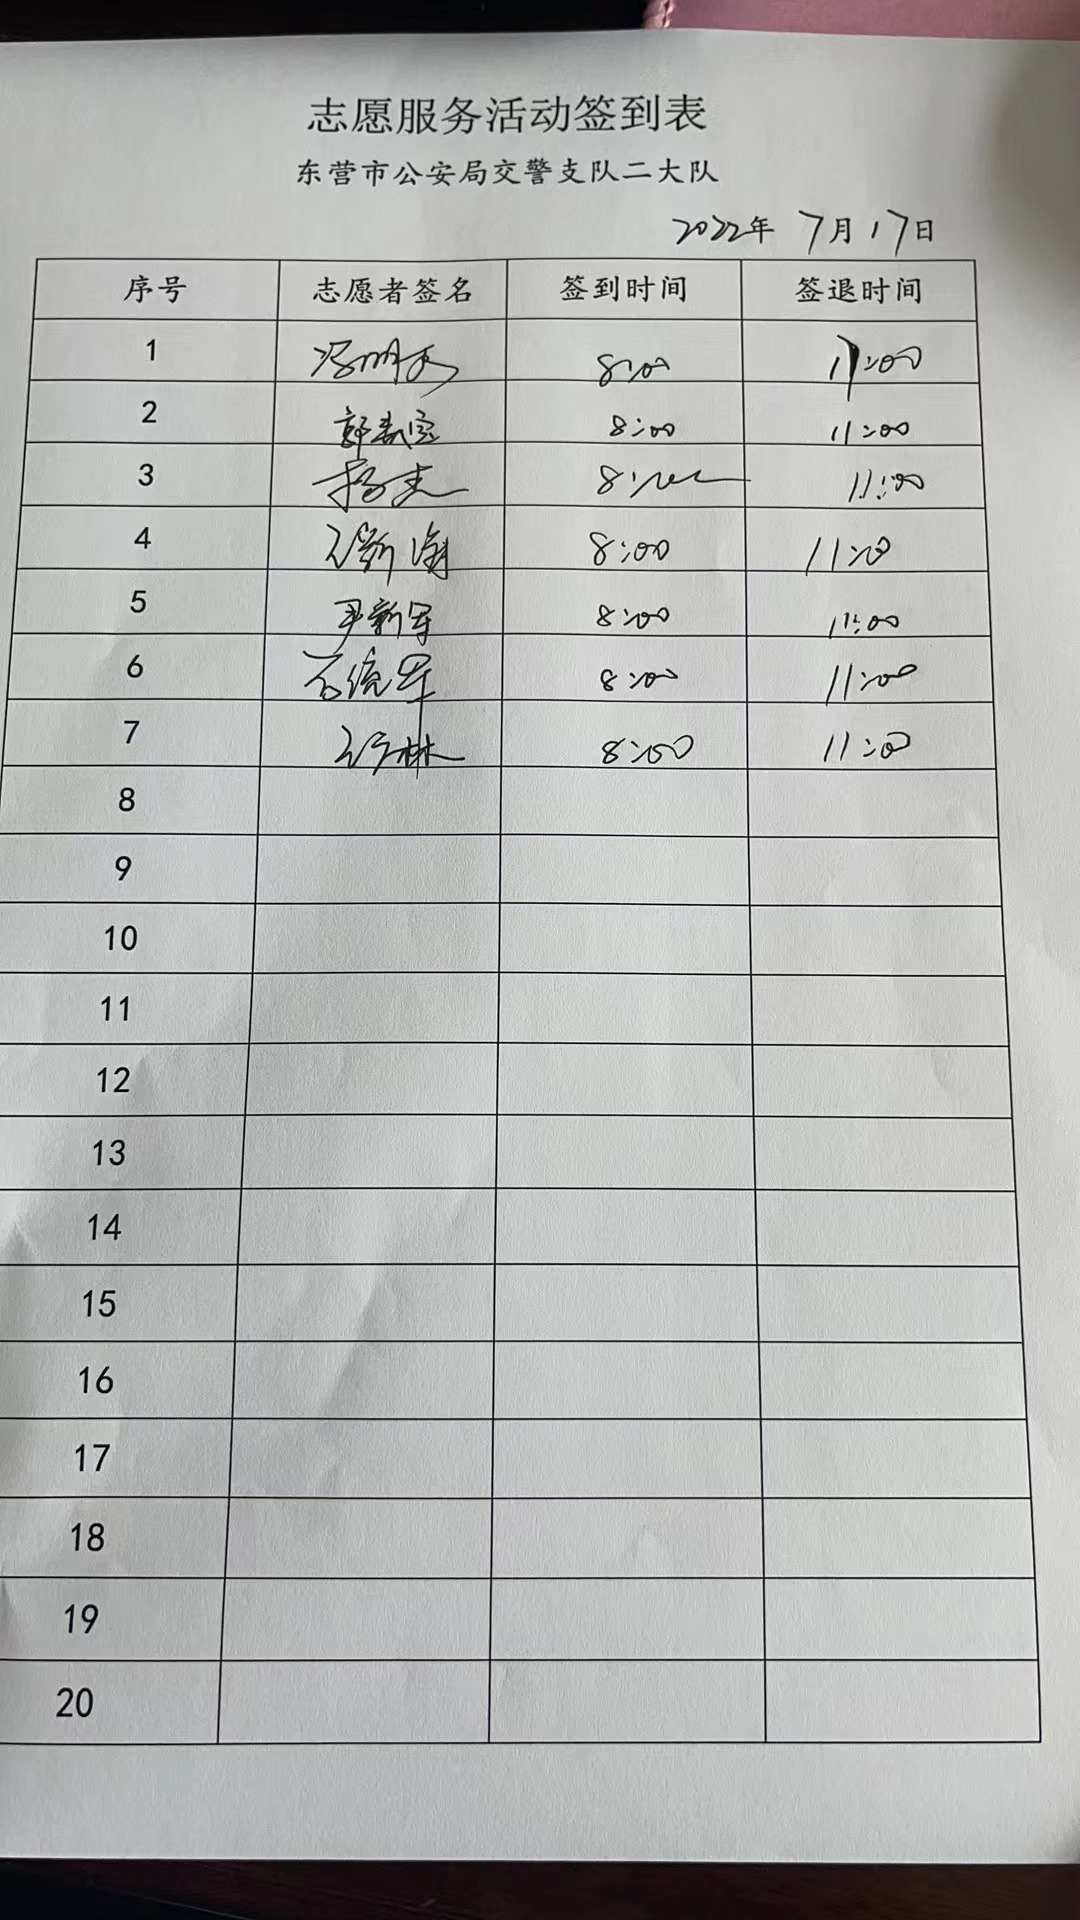 志愿服务活动签到表
东营市公安局交警支队二大队
2022年 7月17日
序号 志愿者签名 签到时间 签退时间
1 8:00 11:00
2 8:00 11:00
3 杨志 8:00 11:00
4 8:00 11:00
5 尹新军 8:00 11:00
6 石统军 8:00 11:00
7 8:00 11:00
8
9
10
11
12
13
14
15
16
17
18
19
20